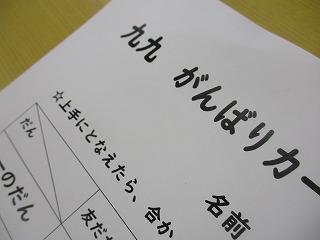 九九 がんばりカー
名前
☆上手にとなえたら、合か
だん
友だ
のだん